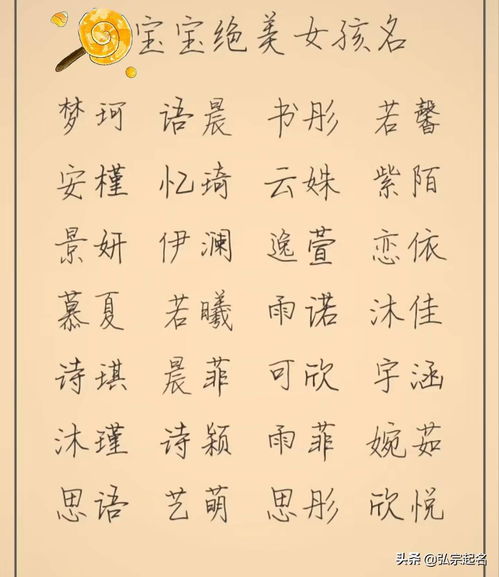 宝宝绝美女孩名
梦珂 语晨 书彤 若馨
安槿 忆琦 云姝 紫陌
景妍 伊澜 逸萱 恋依
慕夏 若曦 雨诺 沐佳
诗琪 晨菲 可欣 宇涵
沐瑾 诗颖 雨菲 婉茹
思语 艺萌 思彤 欣悦
头条 @弘宗起名